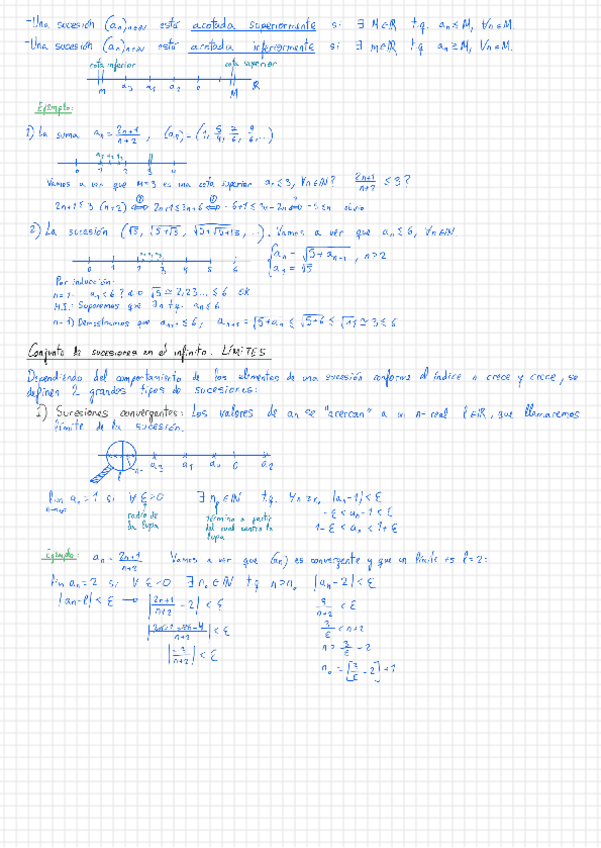 -Una sucesión (an)n∈N está acotada superiormente si ∃ M∈R t.q. an ≤ M, ∀n∈N.
-Una sucesión (an)n∈N está acotada inferiormente si ∃ m∈R tq an ≥ M, ∀n∈N.
cota inferior cota superior
m a3 a1 a2 0 M R
Ejemplo:
1) La suma an = 2n+1/n+2, (an) = (1, 5/4, 7/5, 9/6, ...)
0 1 2 3 4
Vamos a ver que M=3 es una cota superior an ≤ 3, ∀n∈N? 2n+1/n+2 ≤ 3?
2n+1 ≤ 3 (n+2) ⟺ 2n+1 ≤ 3n+6 ⟺ -6+1 ≤ 3n-2n -5 ≤ n
2) La sucesión (√5, √5+√5, √5+√5+√5, ...). Vamos a ver que an ≤ 6, ∀n∈N.
0 1 2 3 4 5 6
{an = √5+an-1, n>2
a1 = √5
Por inducción:
n=1. a1 ≤ 6? ⟺ √5 ≃ 2,23... ≤ 6 ok
H.I: Suponemos que ∃n tq. an ≤ 6
n+1) Demostramos que an+1 ≤ 6; an+1 = √5+an ≤ √5+6 ≤ √11 ≃ 3 ≤ 6
Conjunto de sucesiones en el infinito. LÍMITES
Dependiendo del comportamiento de los elementos de una sucesión conforme el índice n crece y crece, se
definen 2 grandes tipos de sucesiones:
1) Sucesiones convergentes: Los valores de an se "acercan" a un n- real ℓ∈R, que llamaremos
límite de la sucesión.
ℓ a3 a1 a4 0 a2
lim an = 1 si ∀ε>0 ∃ n0∈N t.q. ∀n≥n0 |an-1|<ε
radio de la lupa
término a partir del cual entra la lupa
-ε < an-1 < ε
1-ε < an < 1+ε
Ejemplo: an = 2n+1/n+2 Vamos a ver que (an) es convergente y que un límite es ℓ=2:
lim an=2 si ∀ε>0 ∃ n0∈N tq n>n0 |an-2|<ε
|an-ℓ|<ε → |2n+1/n+2 - 2| < ε
|2n+1-2n-4/n+2| < ε
|-3/n+2| < ε
3/n+2 < ε
3/ε < n+2
n > 3/ε - 2
n0 = [3/ε - 2] + 1